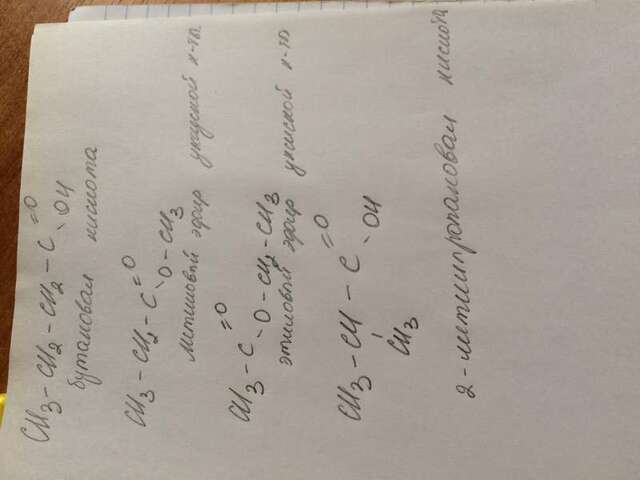 CH3 - CH2 - CH2 - C =O
- OH
бутановая кислота
CH3 - CH2 - C =O
- O - CH3
Метиловый эфир уксусной к-ты
CH3 - C =O
- O - CH2 - CH3
этиловый эфир уксусной к-ты
CH3 - CH - C =O
- OH
CH3
2-метилпропановая кислота